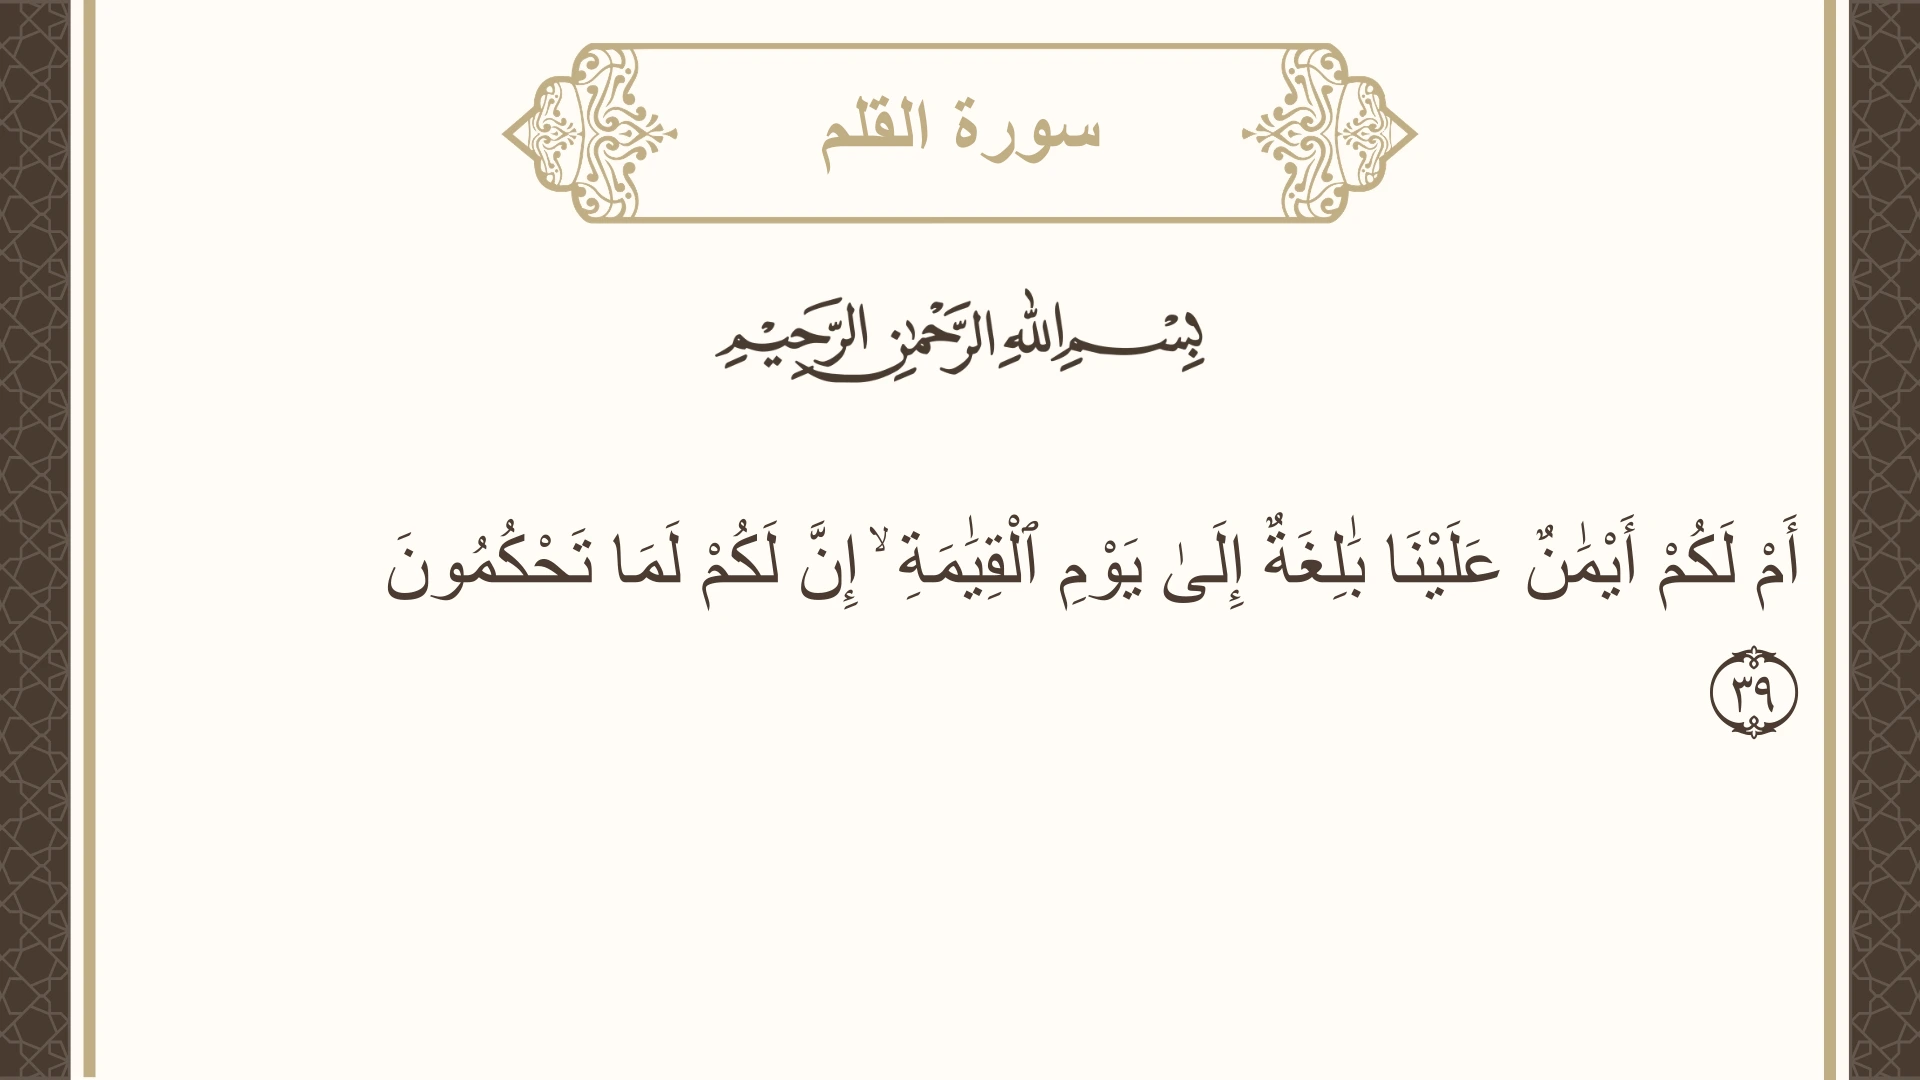 سورة القلم
بِسْمِ اللهِ الرَّحْمٰنِ الرَّحِيْمِ
أَمْ لَكُمْ أَيْمَٰنٌ عَلَيْنَا بَٰلِغَةٌ إِلَىٰ يَوْمِ ٱلْقِيَٰمَةِ ۙ إِنَّ لَكُمْ لَمَا تَحْكُمُونَ
٣٩